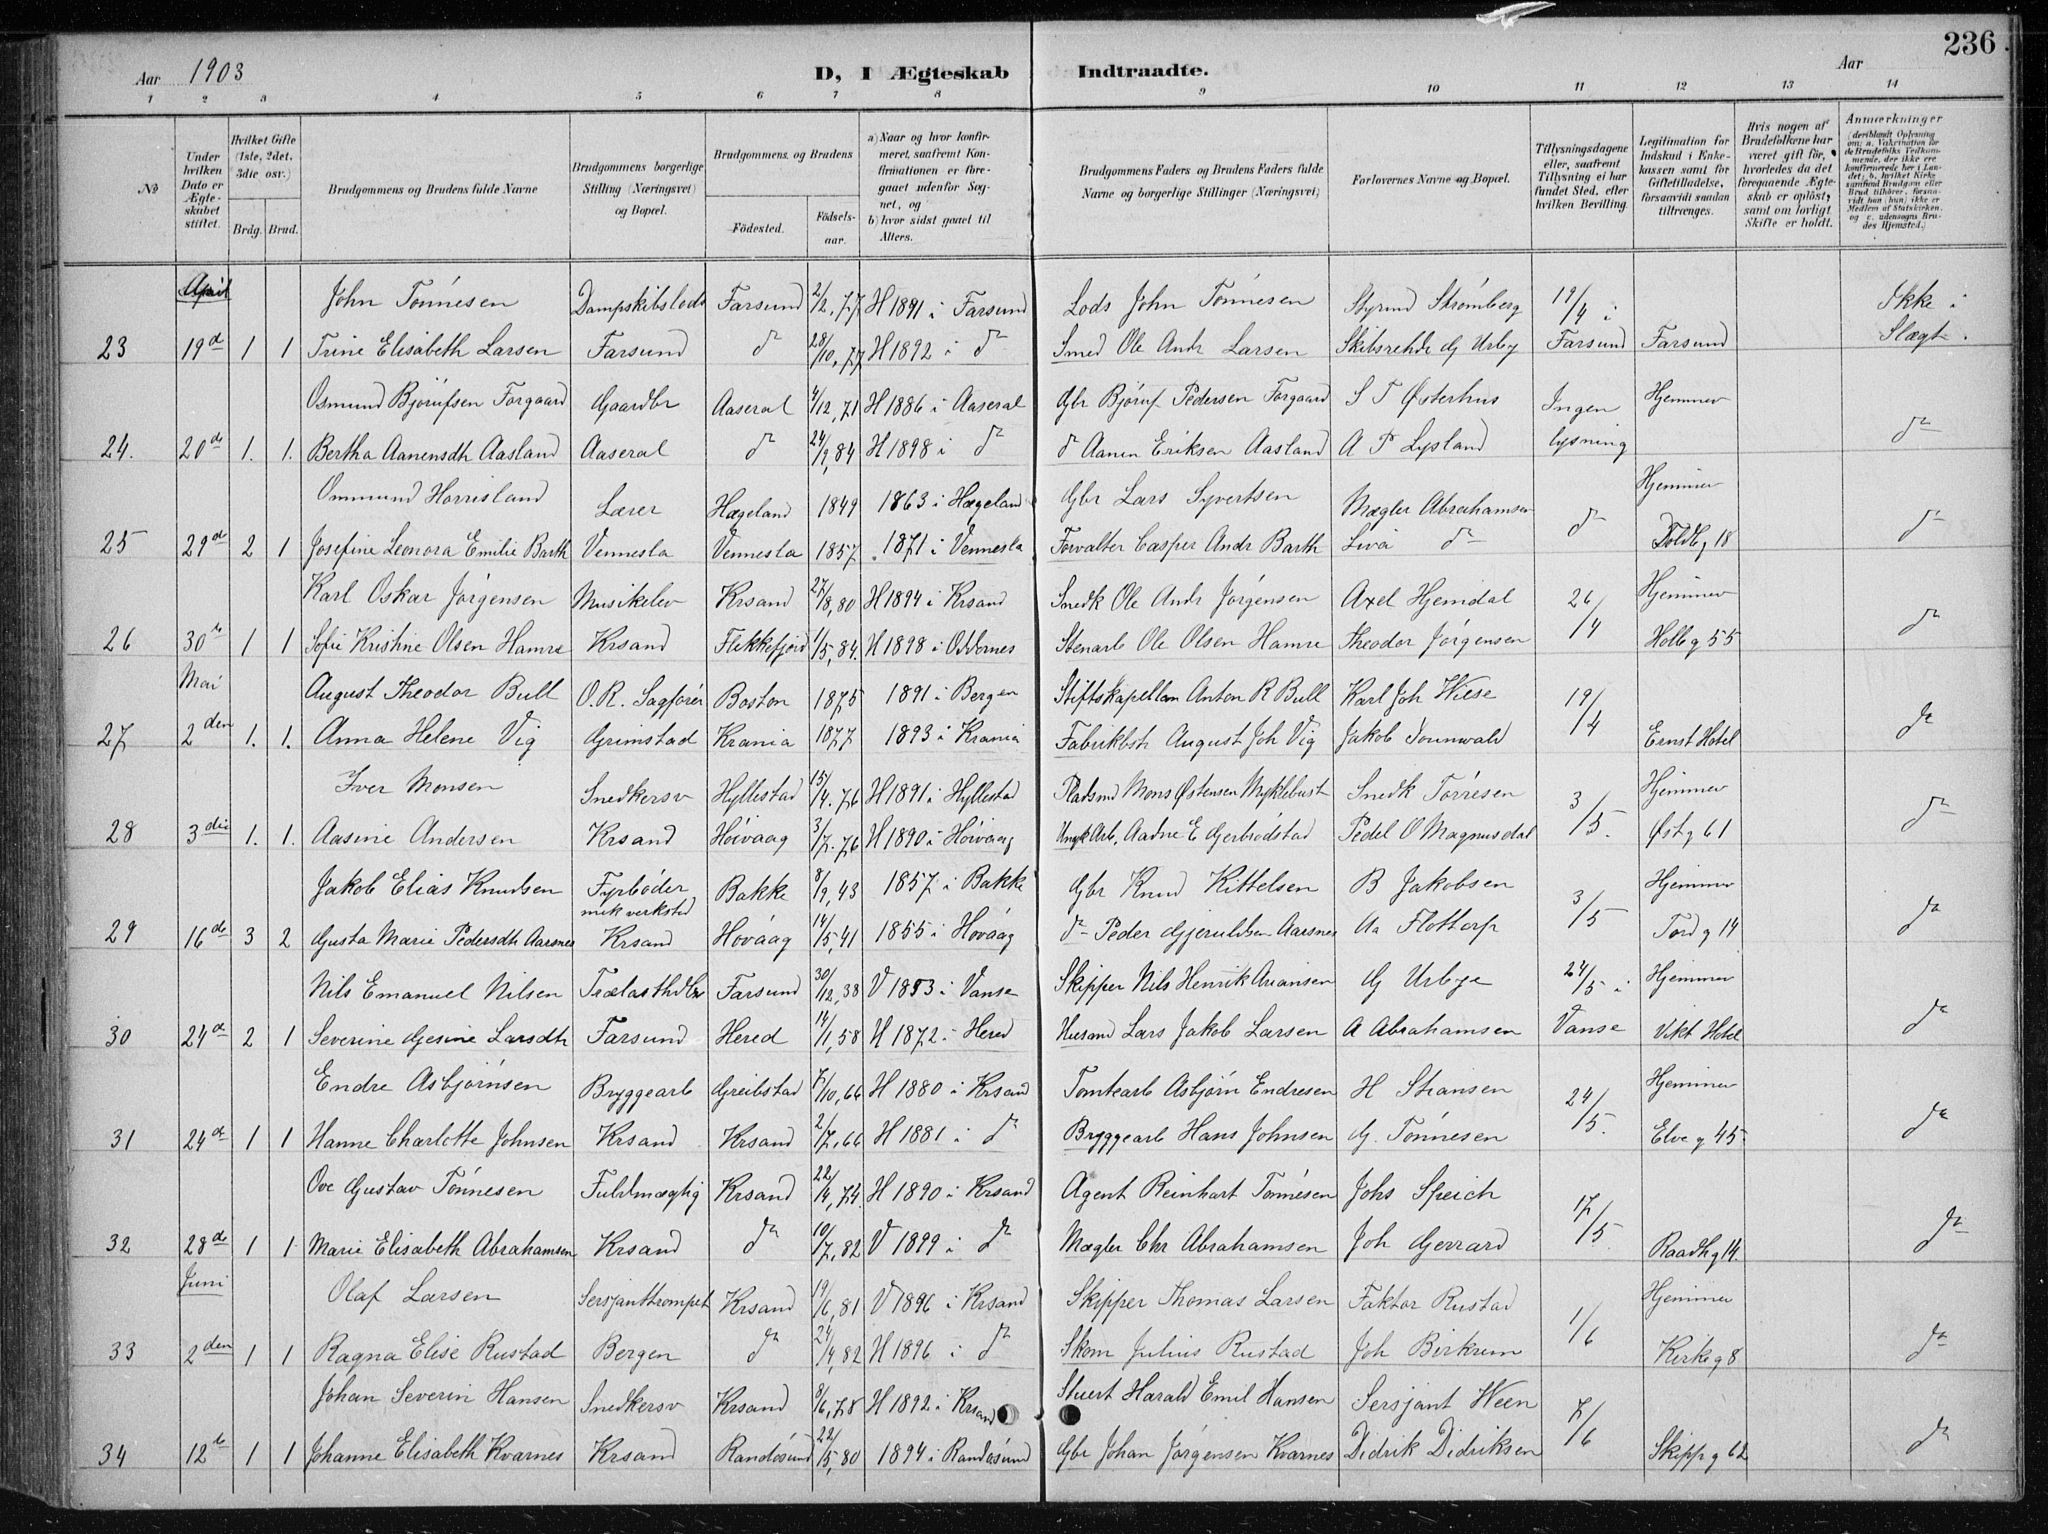 236
Aar 1903
D, I Ægteskab Indtraadte.
Aar
1 2 3 4 5 6 7 8 9 10 11 12 13 14
No
Under hvilken Dato er Ægteskabet stiftet.
Hvilket Gifte (1ste, 2det, 3die osv.)
Brdg. Brud.
Brudgommens og Brudens fulde Navne
Brudgommens borgerlige Stilling (Næringsvei) og Bopæl.
Brudgommens og Brudens
Födested. Födselsaar.
a) Naar og hvor konfirmeret, saafremt Konfirmationen er foregaaet udenfor Sognet, og
b) hvor sidst gaaet til Alters.
Brudgommens Faders og Brudens Faders fulde Navne og borgerlige Stillinger (Næringsvei)
Forlovernes Navne og Bopæl.
Tillysningsdagene eller, saafremt Tillysning ei har fundet Sted, efter hvilken Bevilling.
Legitimation for Indskud i Enkekassen samt for Giftetilladelse, forsaavidt saadan tiltrænges.
Hvis nogen af Brudefolkene har været gift för, hvorledes da det foregaaende Ægteskab er oplöst, samt om lovligt Skifte er holdt.
Anmærkninger
(deriblandt Oplysning om: a. Vakcination for de Brudefolks Vedkommende, der ikke ere konfirmerede her i Landet; b. hvilket Kirkesamfund Brudgom eller Brud tilhører, forsaavidt han (hun) ikke er Medlem af Statskirken. og c. udensogns Brudes Hjemsted.)
April John Tönnesen Dampskibslods Farsund 2/2,77 H 1891 i Farsund Lods John Tönnesen Styrmd Strømberg 19/4 i Ikke i
23 19d 1 1 Trine Elisabeth Larsen Farsund do 28/10,77 H 1892 i do Smed Ole Andr Larsen Skibsrehder G Urby Farsund Farsund Slægt.
Osmund Bjørufsen Forgaard Gaardbr Aaseral 4/12,71 H 1886 i Aaseral Gbr Bjøruf Pedersen Forgaard S T Østerhus Ingen Hjemmev
24. 20de 1. 1. Bertha Aanensdh Aasland Aaseral do 24/9,84 H 1898 i do do Aanen Eriksen Aasland A P Lysland lysning do
Ommund Horrisland Lærer Hægeland 1849 1863 i Hægeland Gbr Lars Syvertsen Mægler Abrahamsen Hjemmev
25 29de 2 1 Josefine Leonora Emilie Barth Vennesla Vennesla 1857 1871 i Vennesla Forvalter Casper Andr Barth Liva do do Toldb g 18 do
Karl Oskar Jørgensen Musikelev Krsand 27/8,80 H 1894 i Krsand Snedk Ole Andr Jørgensen Axel Hjemdal 26/4 Hjemmev
26 30te 1 1 Sofie Kristine Olsen Hamre Krsand Flekkefjord 1/5,84. H 1898 i Oddernes Stenarb Ole Olsen Hamre Theodor Jørgensen Holb g 55 do
Mai August Theodor Bull O.R. Sagfører Boston 1875 1891 i Bergen Stiftskapellan Anton R Bull Karl Joh Wiese 19/4
27 2den 1. 1. Anna Helene Vig Grimstad Krania 1877 1893 i Krania Fabrikbst August Joh Vig Jakob Sounwald Ernst Hotel do
Iver Monsen Snedkersv Hyllestad 15/4.76 H 1891 i Hyllestad Pladsmd Mons Østensen Myklebust Snedk Tørresen 3/5. Hjemmev
28 3die 1. 1. Aasine Andersen Krsand Høivaag 3/7.76 H 1890 i Høivaag Aadne E Gjerbrödstad Pedel O Magnusdal Øst g 61 do
Jakob Elias Knudsen Fyrbøder Bakke 8/9,43 1857 i Bakke Gbr Knud Kittelsen B Jakobsen 3/5 Hjemmev
mek verksted
29 16de 3 2 Gusta Marie Pedersdh Aarsnes Krsand Høvaag 14/5,41 1855 i Høvaag do Peder Gjeruldsen Aarsnes Aa Flottorp Tord g 14 do
Nils Emanuel Nilsen Trælasthdler Farsund 30/12,38 V 1853 i Vanse Skipper Nils Henrik Ariansen G Urbye 24/5 i Hjemmev
30 24d 2 1 Severine Gesine Larsdth Farsund Hered 14/1,58 H 1872 i Hered Husmd Lars Jakob Larsen A Abrahamsen Vanse Vikt Hotel do
Endre Asbjørnsen Bryggearb Greibstad 7/10,66 H 1880 i Krsand Tomtearb Asbjørn Endresen H Stiansen 24/5. Hjemmev
31 24de 1 1 Hanne Charlotte Johnsen Krsand Krsand 2/7,66 H 1881 i do Bryggearb Hans Johnsen G. Tönnesen Elve g 45 do
Ove Gustav Tönnesen Fuldmægtig Krsand 22/4,74. H 1890 i Krsand Agent Reinhart Tönnesen Johs Speich 17/5
32 28de 1 1 Marie Elisabeth Abrahamsen Krsand do 10/7,82 V 1899 i do Mægler Chr Abrahamsen Joh Gerrard Raadh g 14. do
Juni Olaf Larsen Sersjanttrompet Krsand 19/6,81 V 1896 i Krsand Skipper Thomas Larsen Faktor Rustad 1/6 Hjemmev
33 2den 1 1 Ragna Elise Rustad Bergen do 24/4,82 H 1896 i do Skom Julius Rustad Joh Birkrem Kirke g 8 do
Johan Severin Hansen Snedkersv Krsand 8/6,78 H 1892 i Krsand Stuert Harald Emil Hansen Sersjant Ween 7/6
34 12te 1 1 Johanne Elisabeth Kvarnes Krsand Randøsund 22/5,80 1894 i Randøsund Gbr Johan Jørgensen Kvarnes Didrik Didriksen Skipp g 62 do